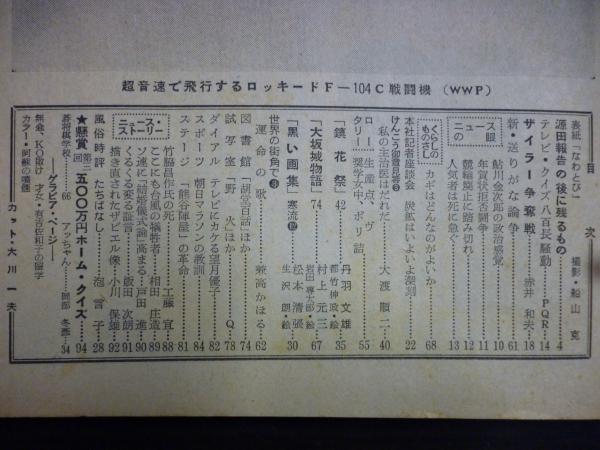 超音速で飛行するロッキードF—104C戦闘機(WWP)
目次
表紙「なわとび」 撮影・船山克
源田報告の後に残るもの 4
テレビ・クイズ八百長騒動 PQR 14
サイラー争奪戦 赤井和夫 18
新・送りがな論争 61
ニュースの眼
鮎川金次郎の政治感覚 10
年賀状拒否闘争 11
競輪廃止に踏み切れ 12
人気者は死に急ぐ 13
くらしのものさし
カギはどんなのがよいか 68
本社記者座談会 炭鉱はいよいよ深刻 22
けんこう御意見番
私の主治医はだれだ 大渡順二 40
ロー「生産点、ヴ
タリー」奨学女中、ボリ詰 55
「鏡花祭」 42 丹羽文雄 都竹伸政・絵 35
「大坂城物語」 74 村上元三 岩田専太郎・絵 67
「黒い画集」寒流 松本清張 生沢朗・絵 30
世界の街角で
運命の歌 兼高かほる 62
図書館「胡堂百話」ほか 74
試写室「野火」ほか Q 78
ダイアル テレビにカケる望月優子 82
スポーツ 朝日マラソンの教訓 84
ステージ 「熊谷陣屋」の革命 81
ニュース・ストーリー
竹脇昌作氏の死 工藤宜 88
ここにも台風の犠牲者 相田庄造 89
ソ連に「結婚儀式論」高まる 戸田進 90
くるくる変る証言 飯田次朗 91
描き直されたザビエル像 小川保雄 92
風俗時評 たちばなし 泡言子 28
★懸賞 第三回 五〇〇万円ホーム・クイズ 94
碁将棋学校 66 アッちゃん 岡部冬彦 34
—グラビア・ページ—
無念、KO負け 才女・有吉佐和子の留学
カット・大川一夫